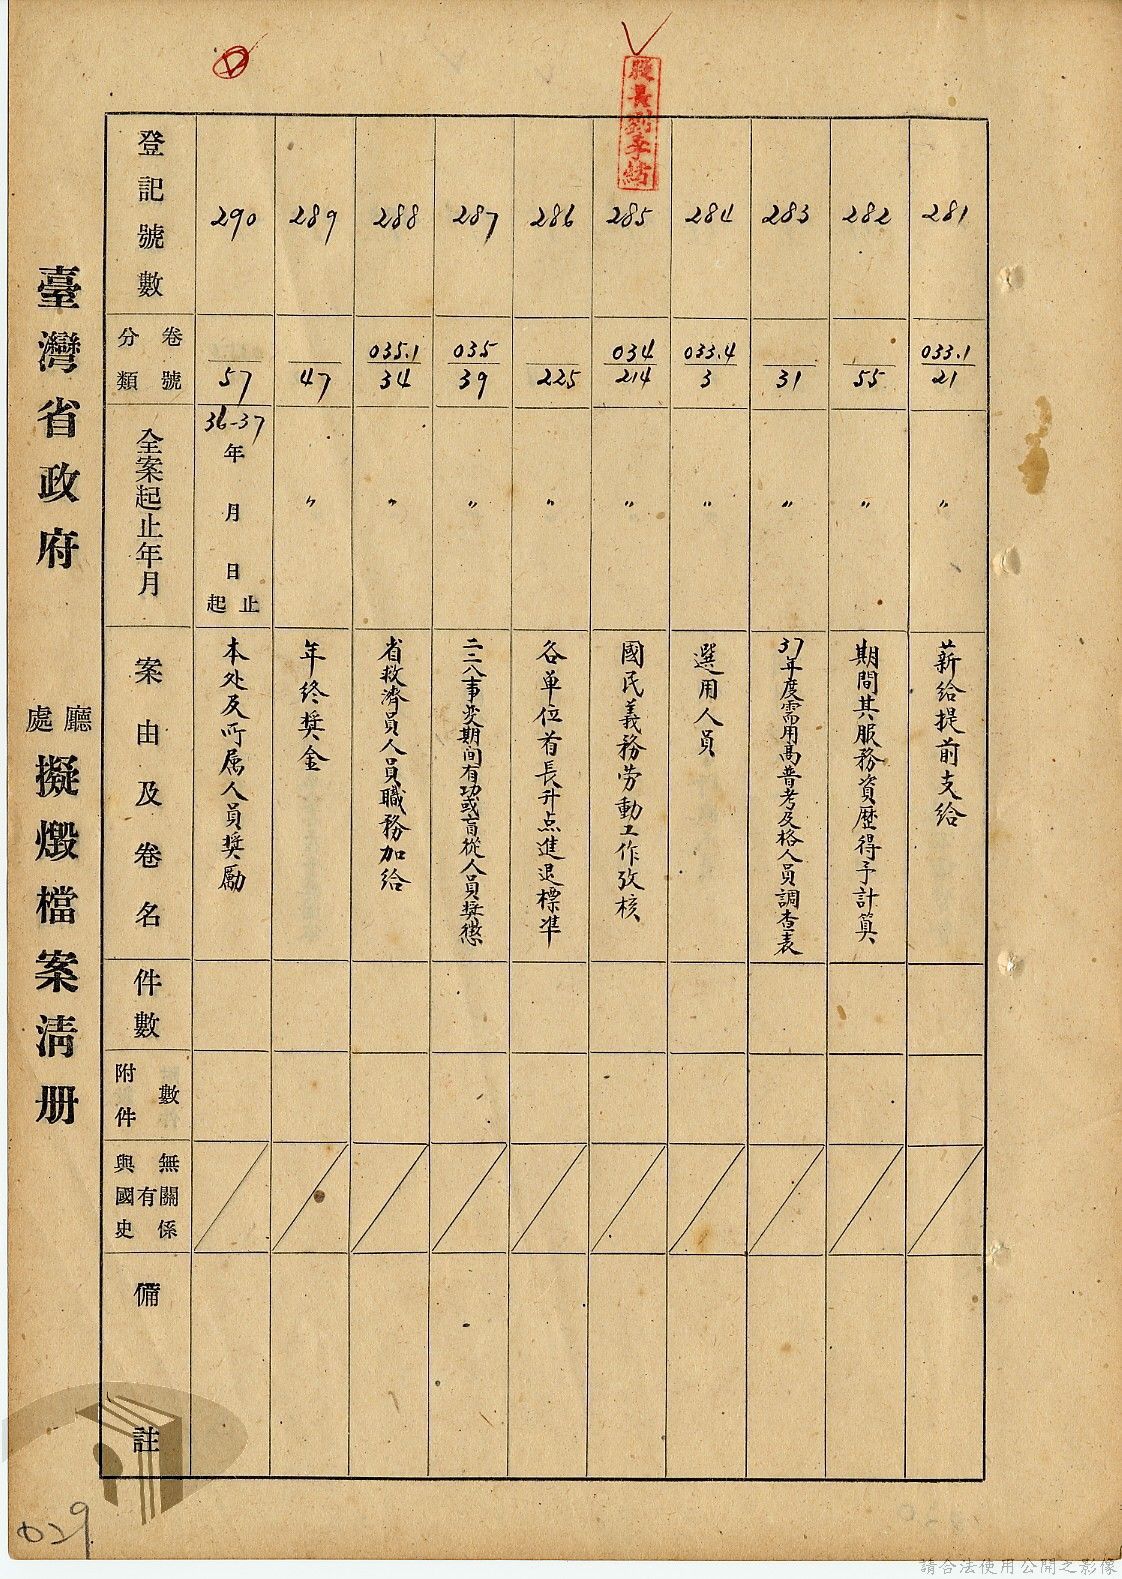 臺灣省政府
廳
處
擬燬檔案清册
登記號數
卷號
分類
全案起止年月
案由及卷名
件數
附件
數
與國史
有
無關係
備註
290
57
36-37
年月日
起止
本处及所属人員奖勵
289
47
〃
年终奖金
288
035.1
34
〃
省救濟員人員職務加給
287
035
39
〃
二二八事变期间有功或盲從人員奖懲
286
225
〃
各单位首長升点進退標準
股長劉季
285
034
214
〃
國民義務劳動工作攷核
284
033.4
3
〃
選用人員
283
31
〃
37年度需用高普考及格人員調查表
282
55
〃
期間其服務資歷得予計算
281
033.1
21
〃
薪給提前支給
029
請合法使用公開之影像